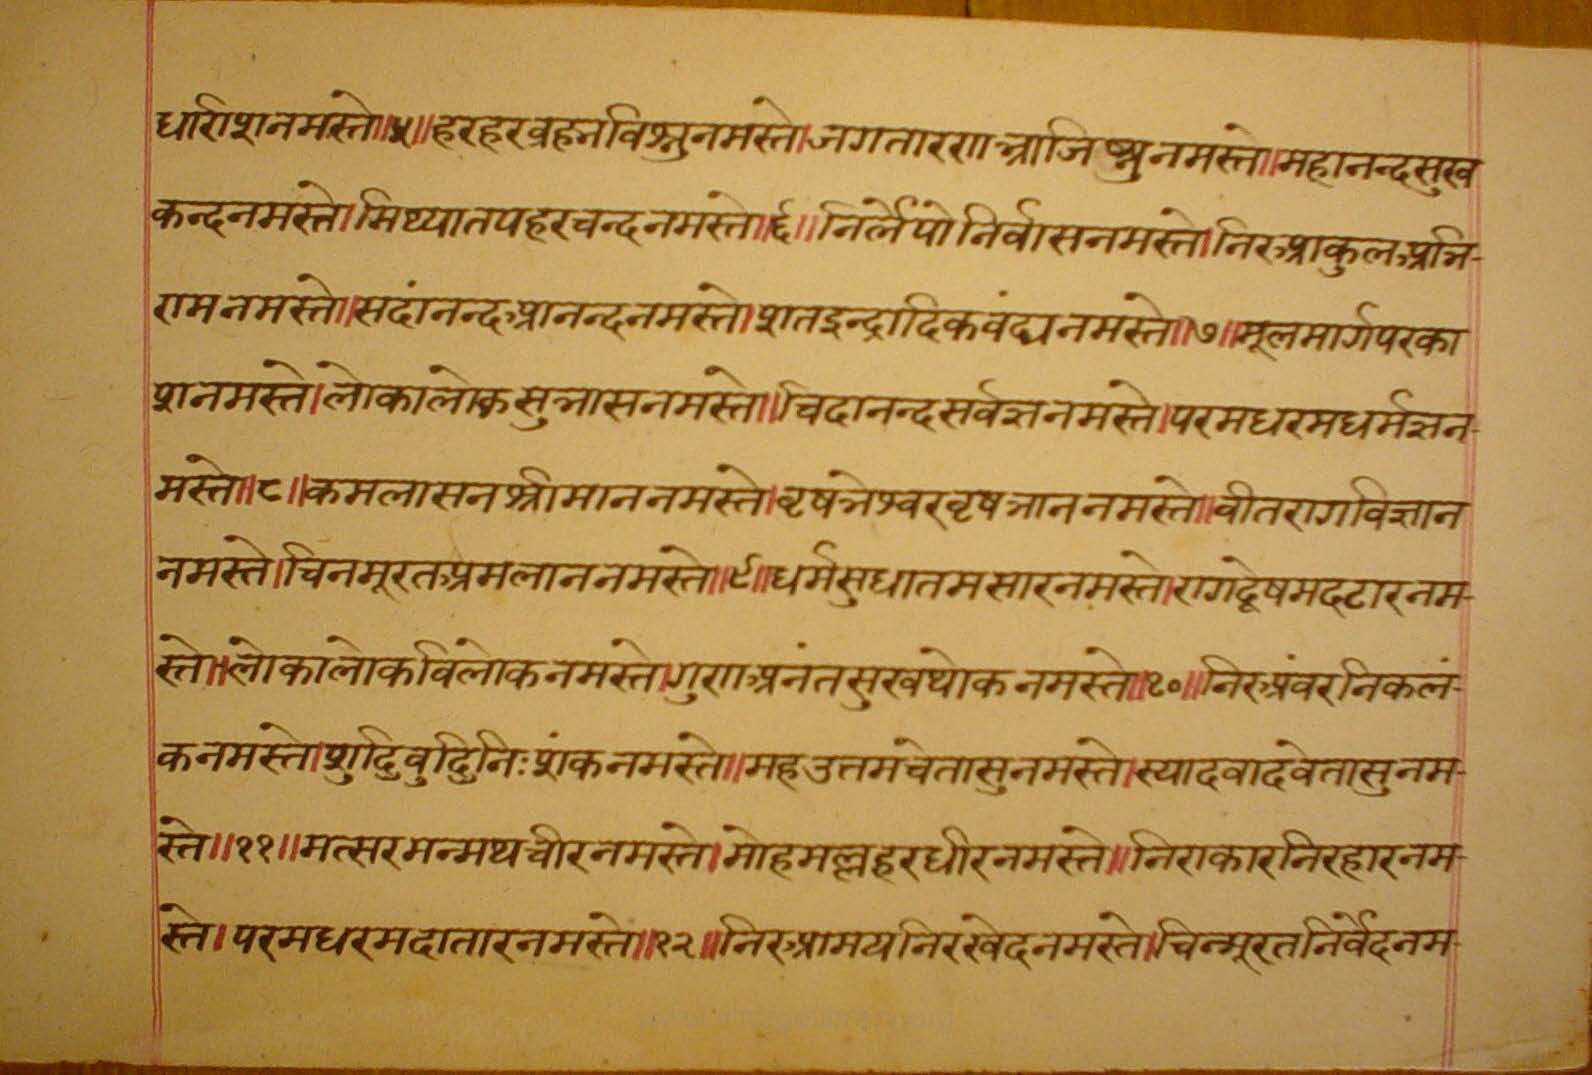 धाराशनमस्ते॥५॥हरहरव्रह्मविश्नुनमस्ते।जगतारणभ्राजिष्नुनमस्ते॥महानन्दसुख
कन्दनमस्ते।मिथ्यातपहरचन्दनमस्ते॥६॥निर्लेपोनिर्वासनमस्ते।निरआकुलअभि-
रामनमस्ते॥सदांनन्दआनन्दनमस्ते।शतइन्द्रादिकवंद्यनमस्ते॥७॥मूलमार्गपरका
शनमस्ते।लोकालोकसुभासनमस्ते॥चिदानन्दसर्वज्ञनमस्ते।परमधरमधर्मज्ञन-
मस्ते॥८॥कमलासनश्रीमाननमस्ते।वृषभेश्वरवृषभाननमस्ते॥वीतरागविज्ञान
नमस्ते।चिनमूरतअमलाननमस्ते॥९॥धर्मसुधातमसारनमस्ते।रागद्वेषमदटारनम-
स्ते॥लोकालोकविलोकनमस्ते।गुणअनंतसुखथोकनमस्ते॥१०॥निरअंवरनिकलं-
कनमस्ते।शुद्धिवुद्धिनिःशंकनमस्ते॥महउत्तमचेतासुनमस्ते।स्यादवादवेतासुनम-
स्ते॥११॥मत्सरमन्मथचीरनमस्ते।मोहमल्लहरधीरनमस्ते॥निराकारनिरहारनम-
स्ते।परमधरमदातारनमस्ते॥१२॥निरआमयनिरखेदनमस्ते।चिन्मूरतनिर्वेदनम-